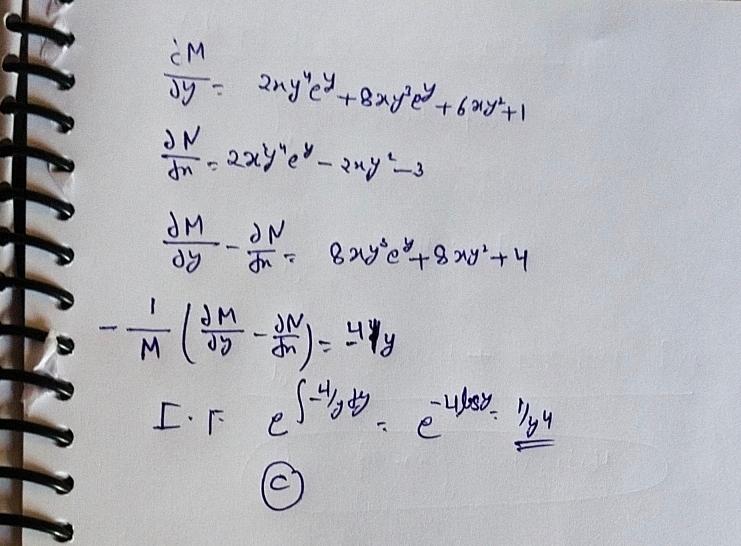 ∂M/∂y = 2xy⁴eʸ + 8xy³eʸ + 6xy² + 1
∂N/∂x = 2x²y⁴eʸ - 2xy² - 3
∂M/∂y - ∂N/∂x = 8xy³eʸ + 8xy² + 4
- 1/M (∂M/∂y - ∂N/∂x) = -4/y
I.F e^∫-4/y dy = e^-4logy = 1/y4
(C)